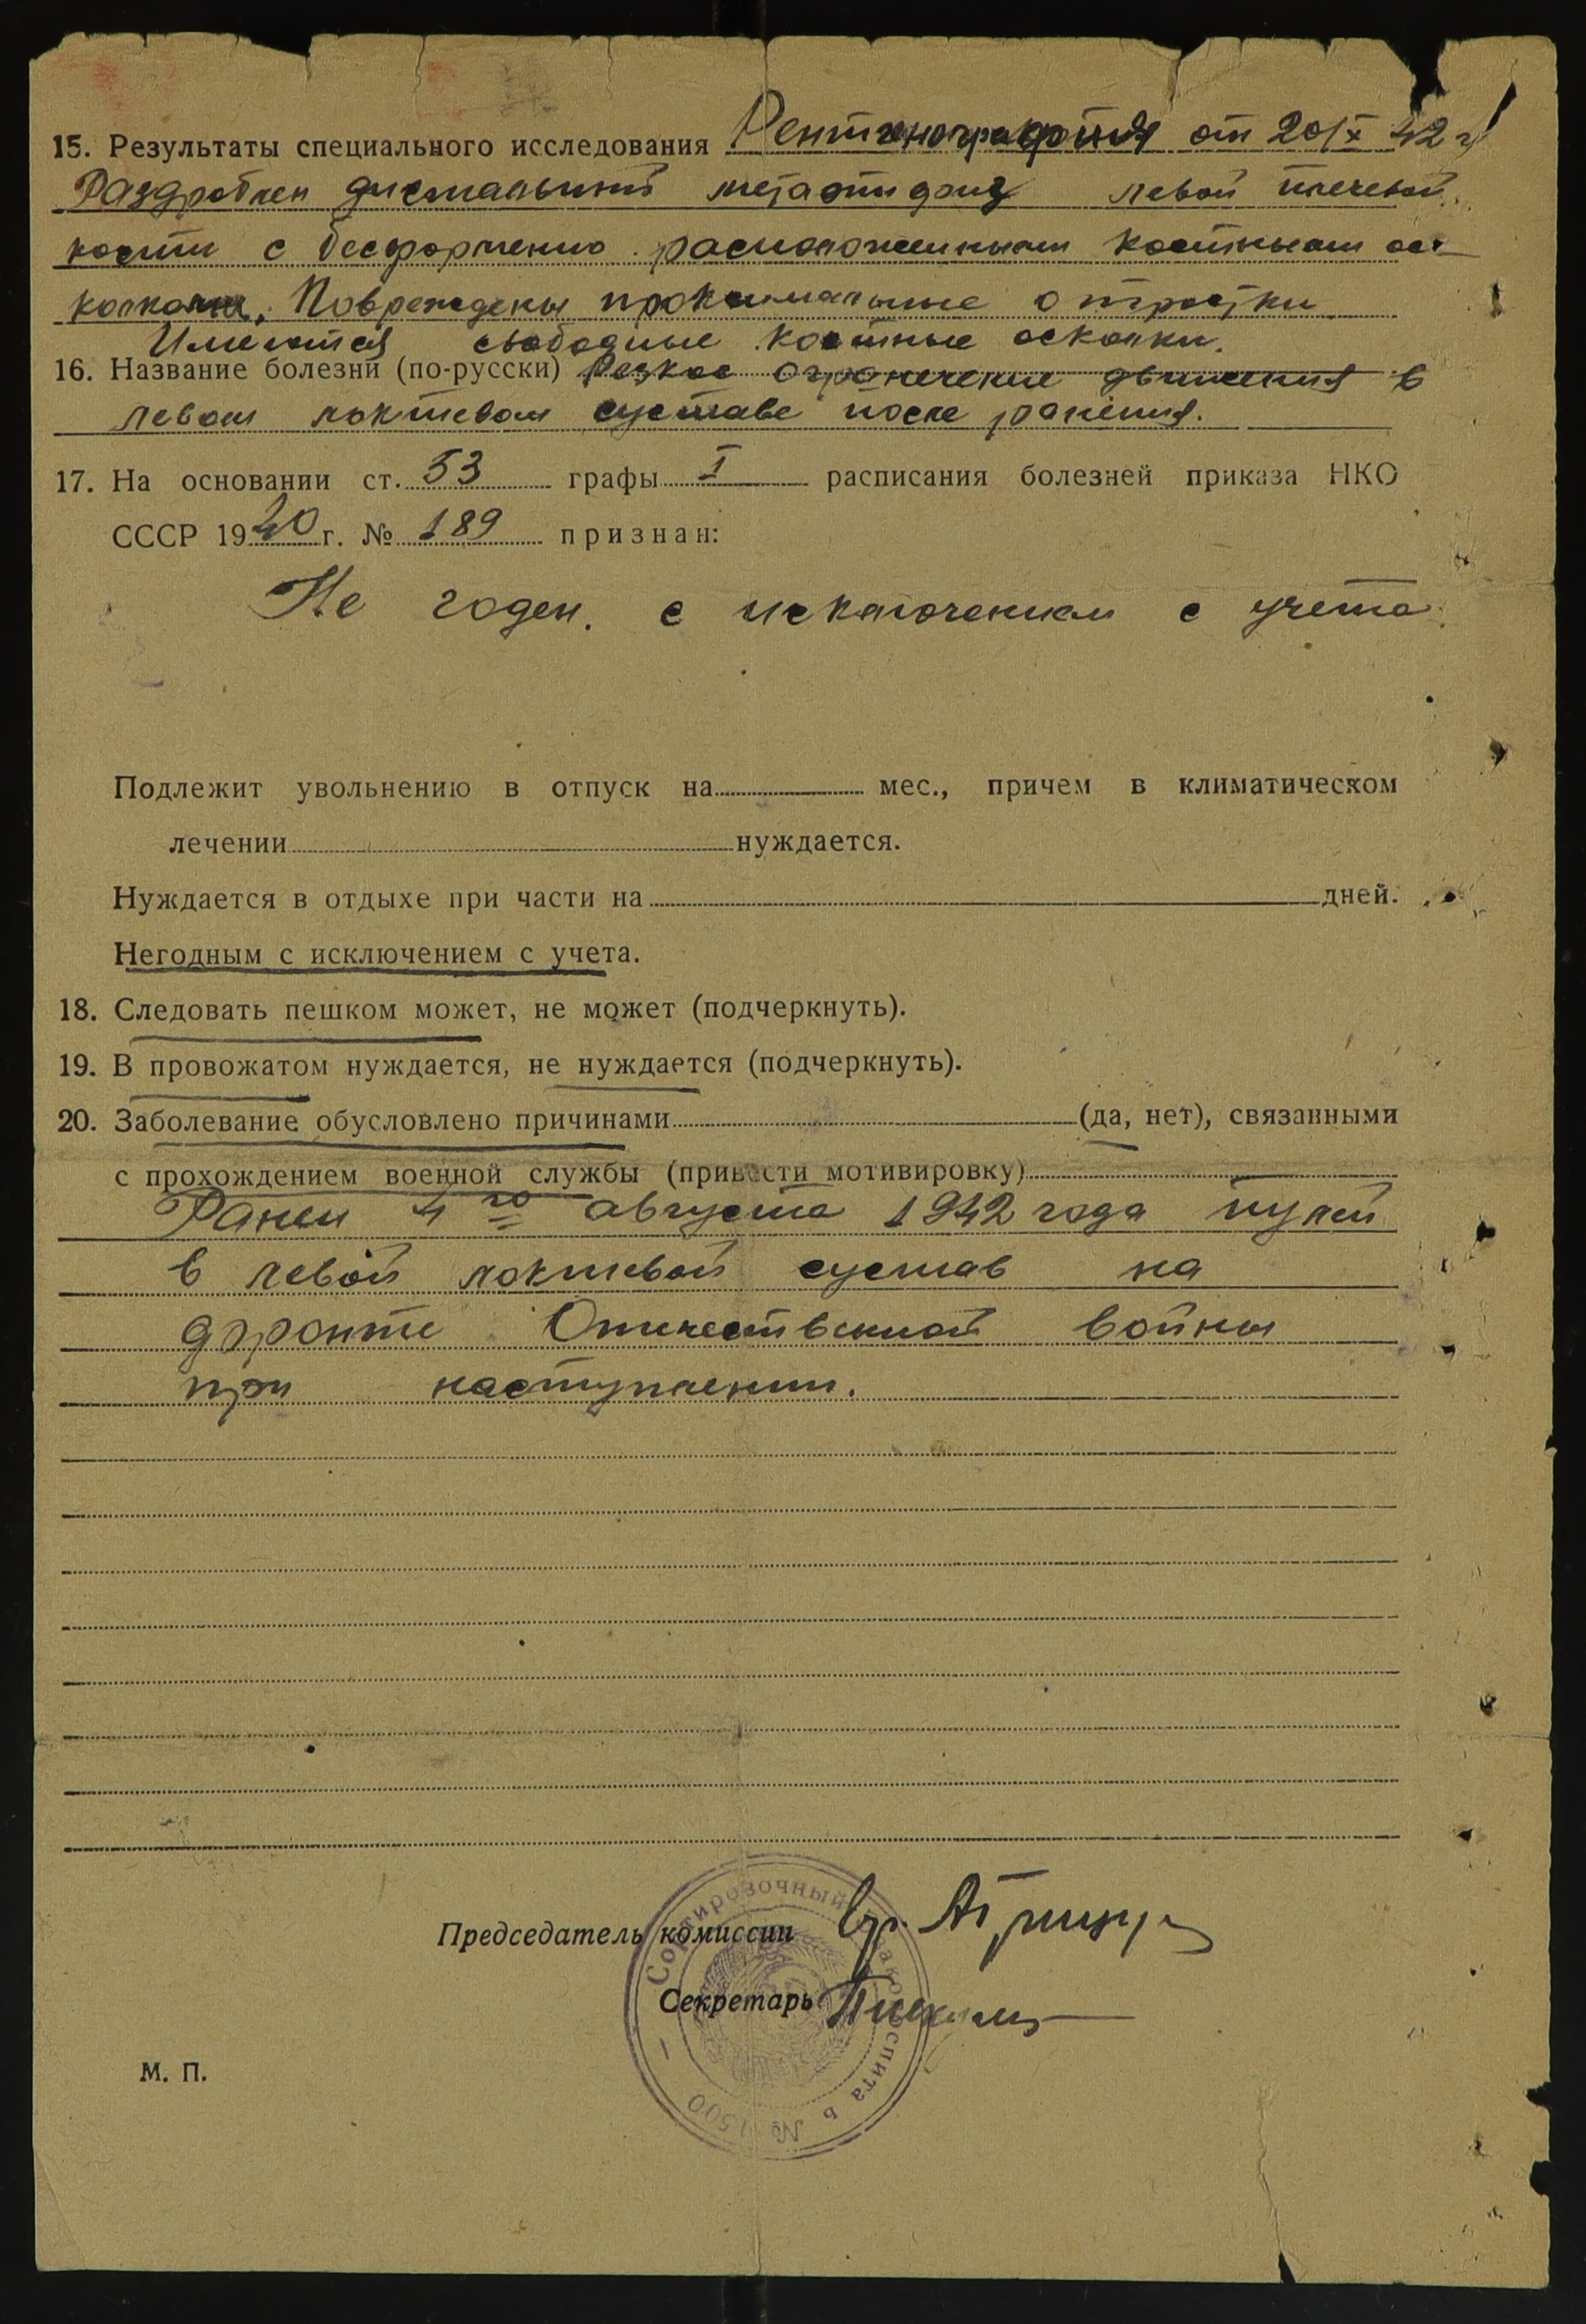 15. Результаты специального исследования Рентгенография от 20/X 42 г
Раздроблен дистальный метаэпифиз левой плечевой
кости с бесформенно расположенными костными ос-
колками. Повреждены проксимальные отростки
Имеются свободные костные осколки.
16. Название болезни (по-русски) Резкое ограничение движения в
левом локтевом суставе после ранения.
17. На основании ст. 53 графы I расписания болезней приказа НКО
СССР 1940 г. № 189 признан:
Не годен. с исключением с учета.
Подлежит увольнению в отпуск на мес., причем в климатическом
лечении нуждается.
Нуждается в отдыхе при части на дней.
Негодным с исключением с учета.
18. Следовать пешком может, не может (подчеркнуть).
19. В провожатом нуждается, не нуждается (подчеркнуть).
20. Заболевание обусловлено причинами (да, нет), связанными
с прохождением военной службы (привести мотивировку)
Ранен 4го августа 1942 года пулей
в левой локтевой сустав на
фронте Отечественной войны
при наступлении.
Председатель комиссии вр.
Секретарь
Сортировочный эвакогоспиталь № 1500
М. П.